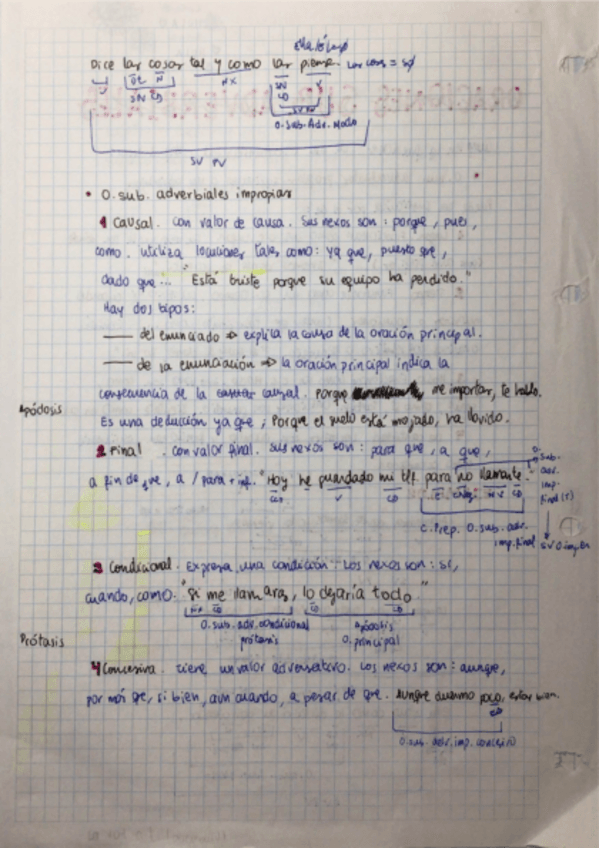 Dice las cosas tal y como las piensa. Las cosas = SØ
V Dt N NX SN V
SN CD CD
SV PV
O. Sub. Adv. Modo
SV PV
• O. sub. adverbiales impropias
1 Causal. Con valor de causa. Sus nexos son: porque, pues,
como. Utiliza locuciones tales como: ya que, puesto que,
dado que... "Está triste porque su equipo ha perdido."
Hay dos tipos:
— del enunciado => explica la causa de la oración principal.
— de la enunciación => la oración principal indica la
consecuencia de la causal. Porque me importas, te hablo.
Apódosis
Es una deducción ya que; Porque el suelo está mojado, ha llovido.
2 Final. Con valor final. Sus nexos son: para que, a que,
a fin de que, a / para + inf. "Hoy he guardado mi tlf. para no llamarte."
O. Sub. adv. imp. final (s)
CCT V CD E CNeg NV CD
C. Prep. O. sub. adv.
imp. final SV O. imp.
3 Condicional. Expresa una condición. Los nexos son: si,
cuando, como. "Si me llamaras, lo dejaría todo"
NX CD CD CD
O. sub. adv. condicional apódosis
prótasis O. principal
Prótasis
4 Concesiva. Tiene un valor adversativo. Los nexos son: aunque,
por más que, si bien, aun cuando, a pesar de que. Aunque duermo poco, estoy bien.
O. sub. adv. imp. concesiva